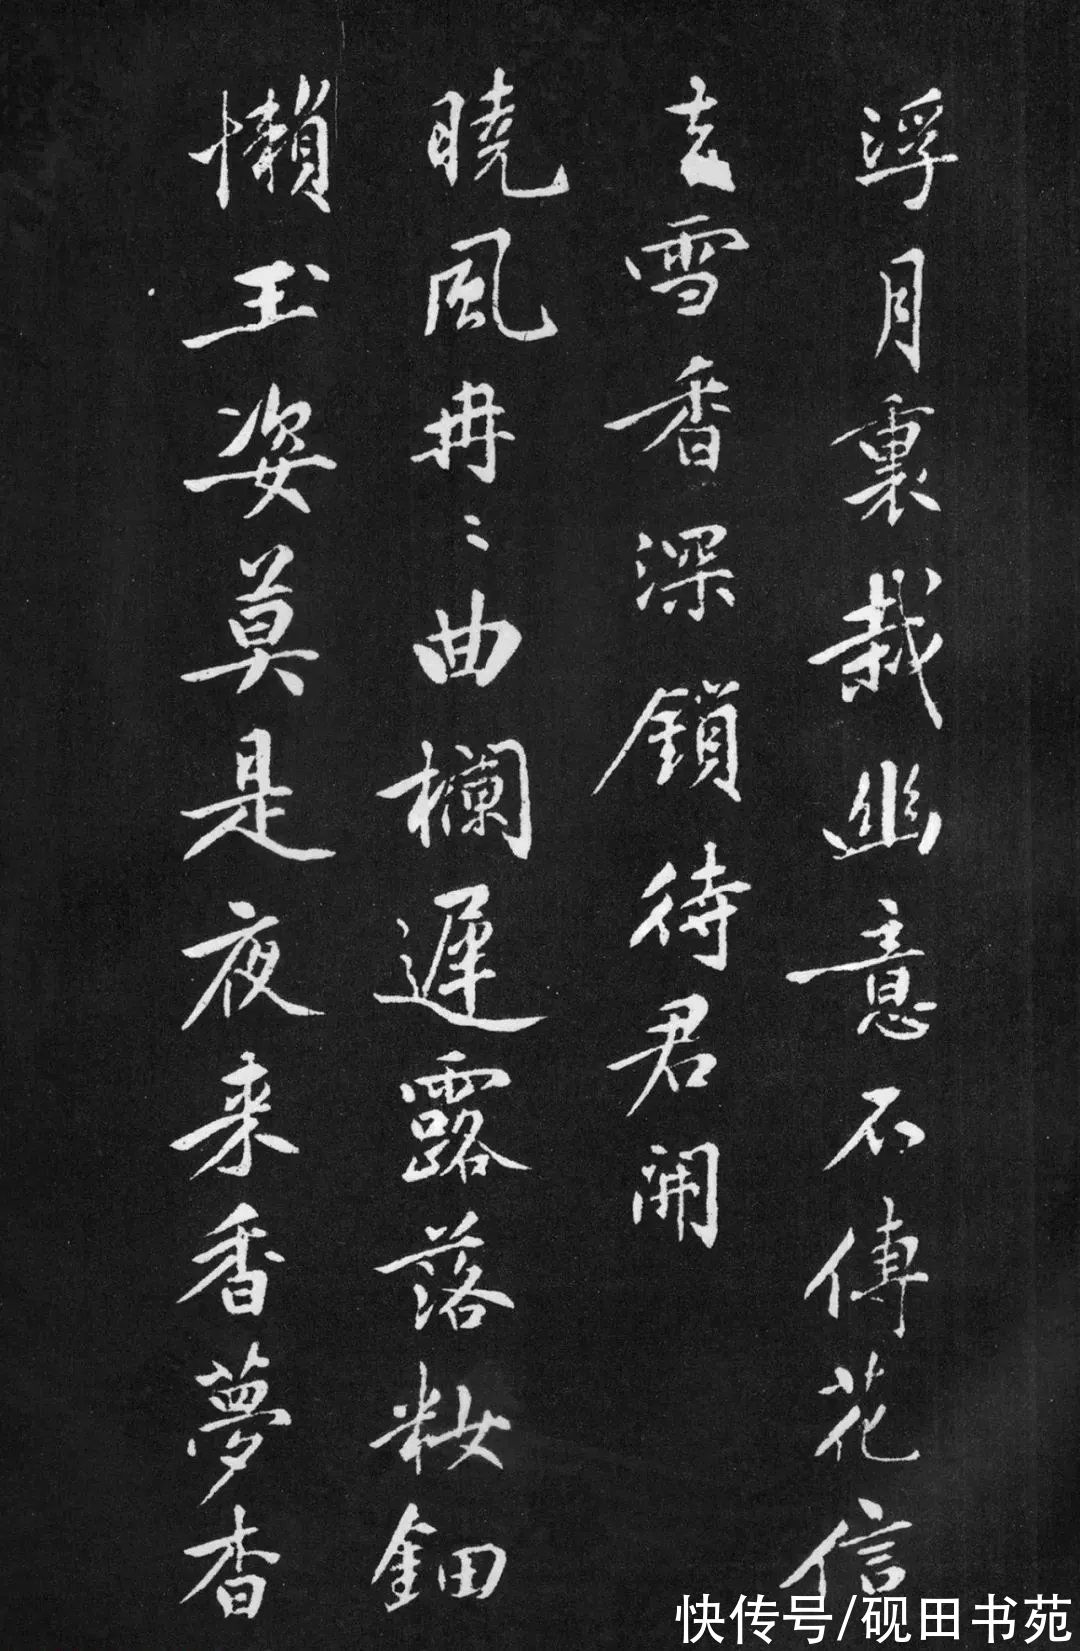 浮月裏栽幽意不傳花信
去雪香深鎖待君開
曉風冉〻曲欄遲露落粧鈿
懶玉姿莫是夜来香夢杳
快传号/砚田书苑